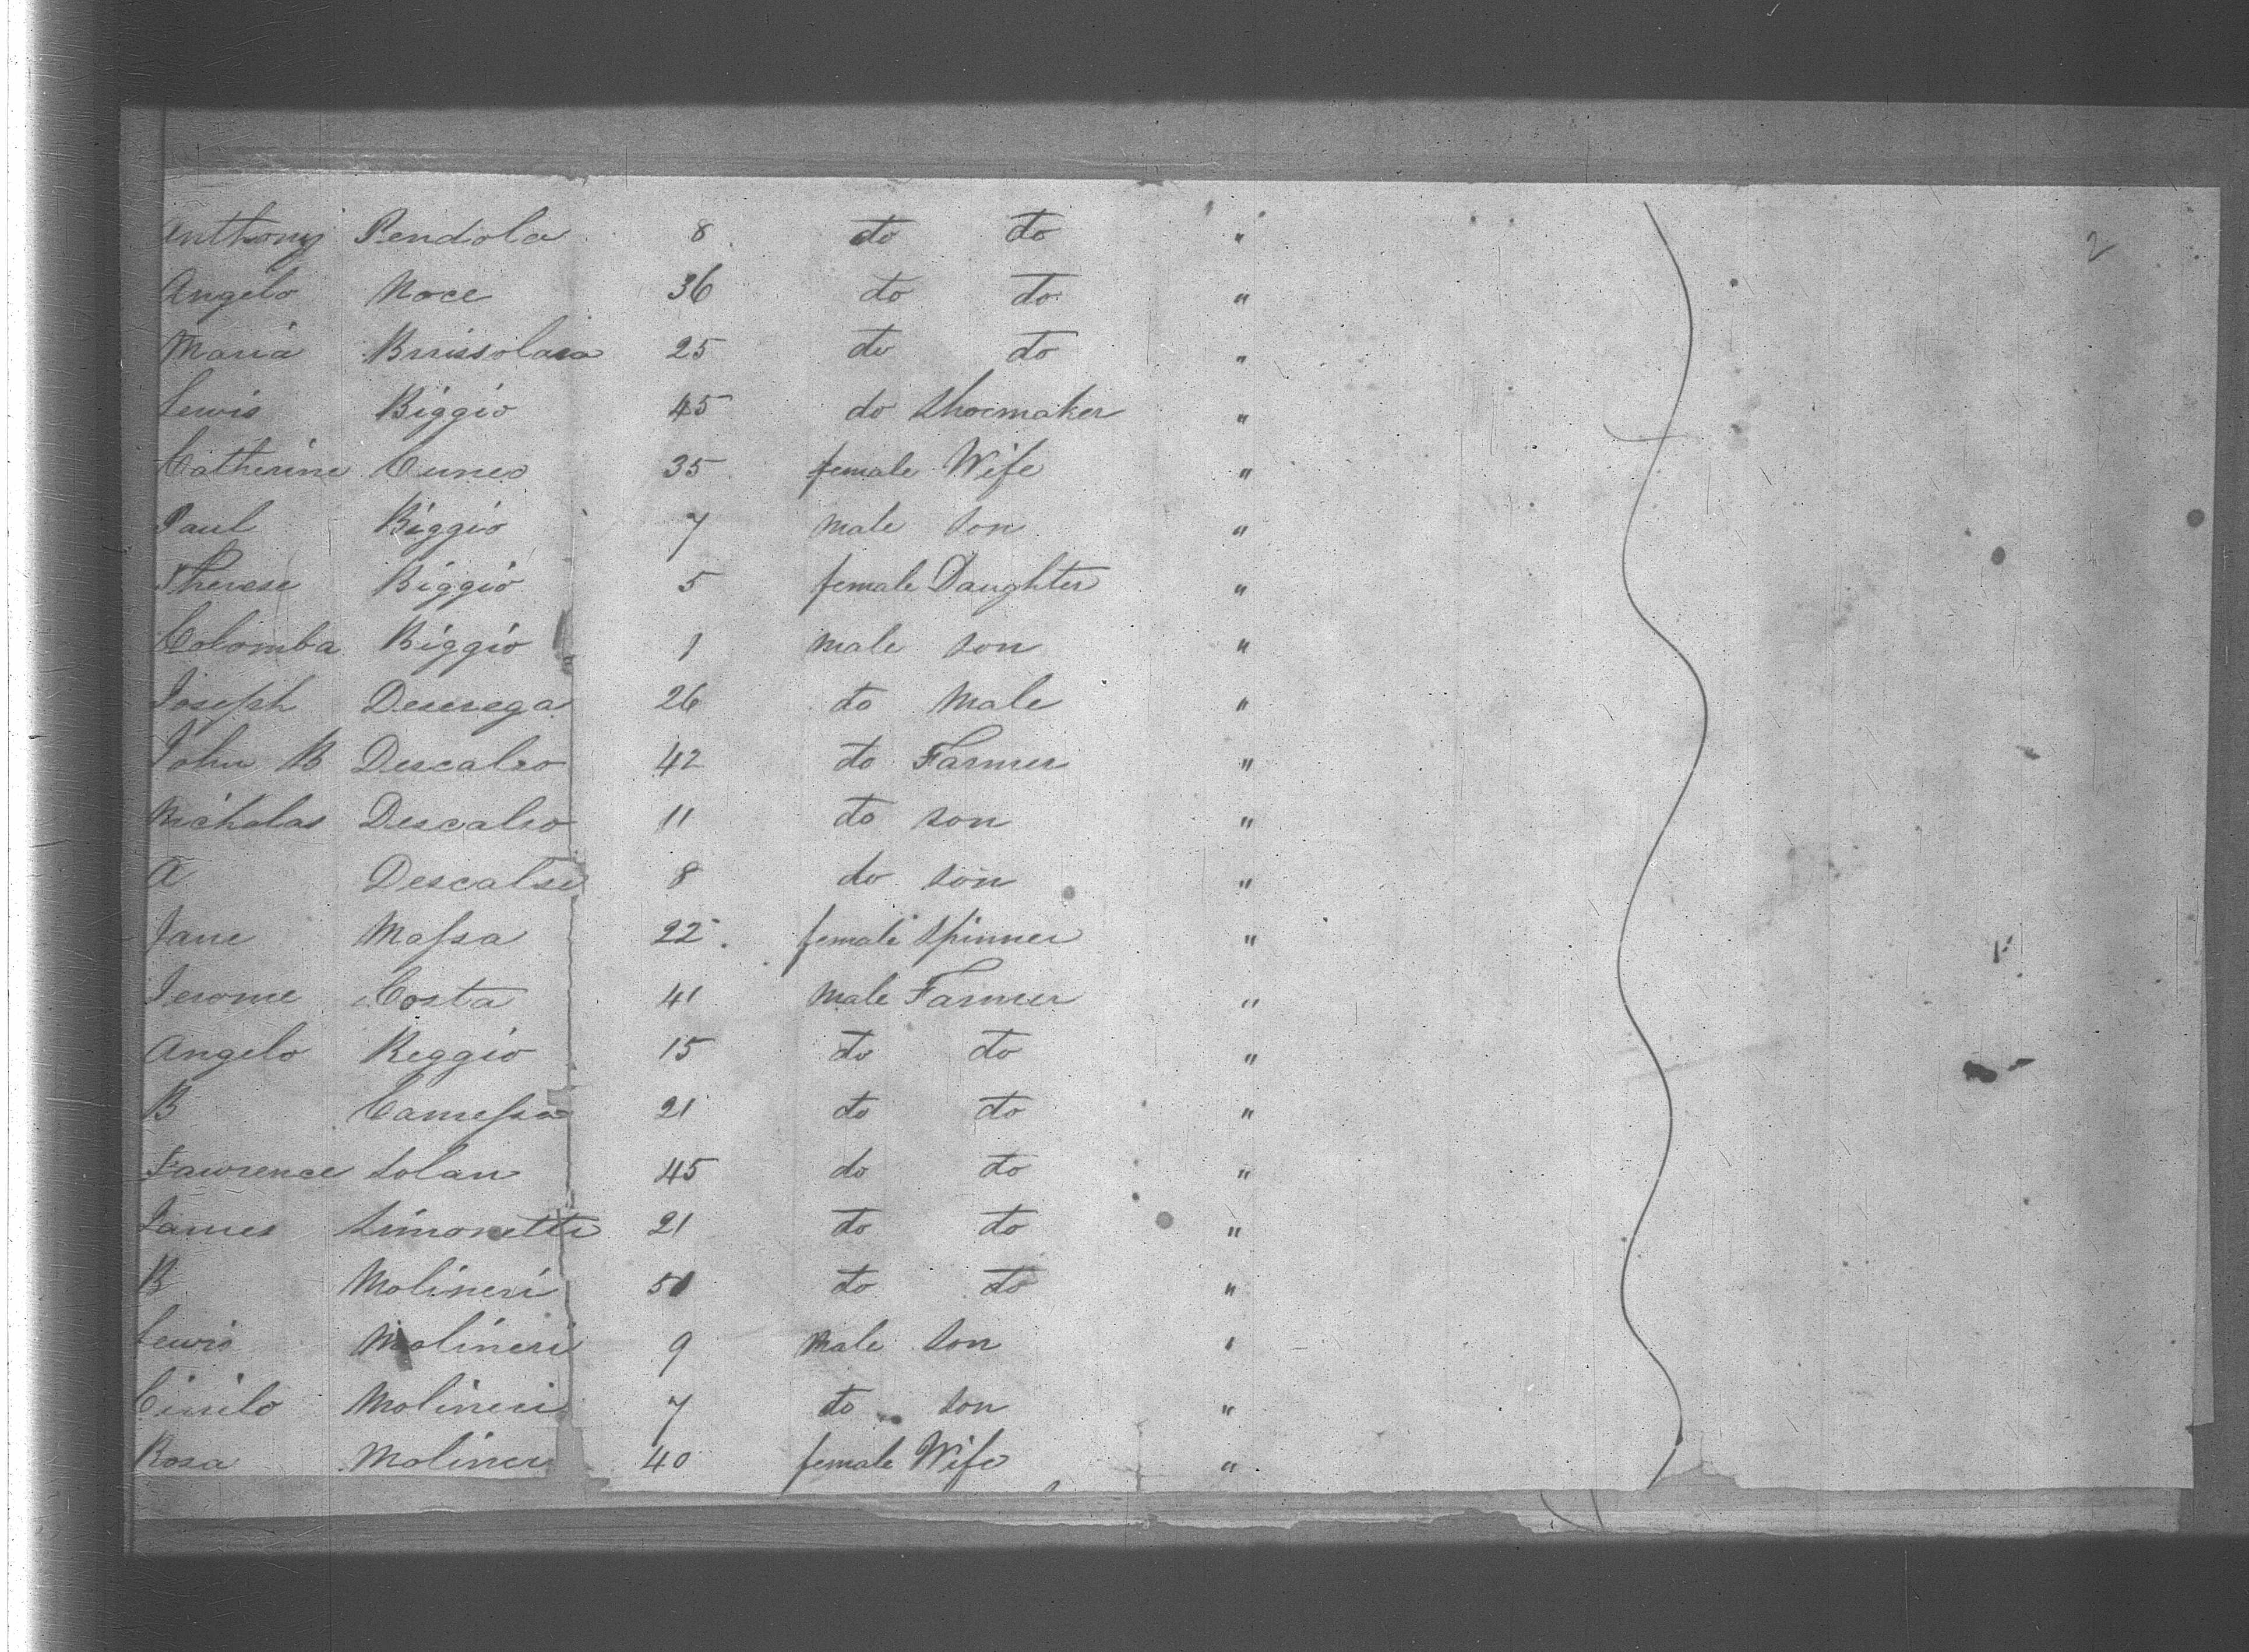 Anthony Pendola 8 do do "
2
Angelo Noce 36 do do "
Maria Brissolara 25 do do "
Lewis Biggio 45 do Shoemaker "
Catherine Cuneo 35 female Wife "
Paul Biggio 7 male son "
Therese Biggio 5 female Daughter "
Colomba Biggio 1 male son "
Joseph Deserega 26 do male "
John B Descalso 42 do Farmer "
Nicholas Descalso 11 do son "
A Descalso 8 do son "
Jane Massa 22 female Spinner "
Jerome Costa 41 male Farmer "
Angelo Reggio 15 do do "
B Camessa 21 do do "
Lawrence Solan 45 do do "
James Simonetti 21 do do "
B Molineri 50 do do "
Lewis Molineri 9 male son "
Cirilo Molineri 7 do son "
Rosa Molineri 40 female Wife "